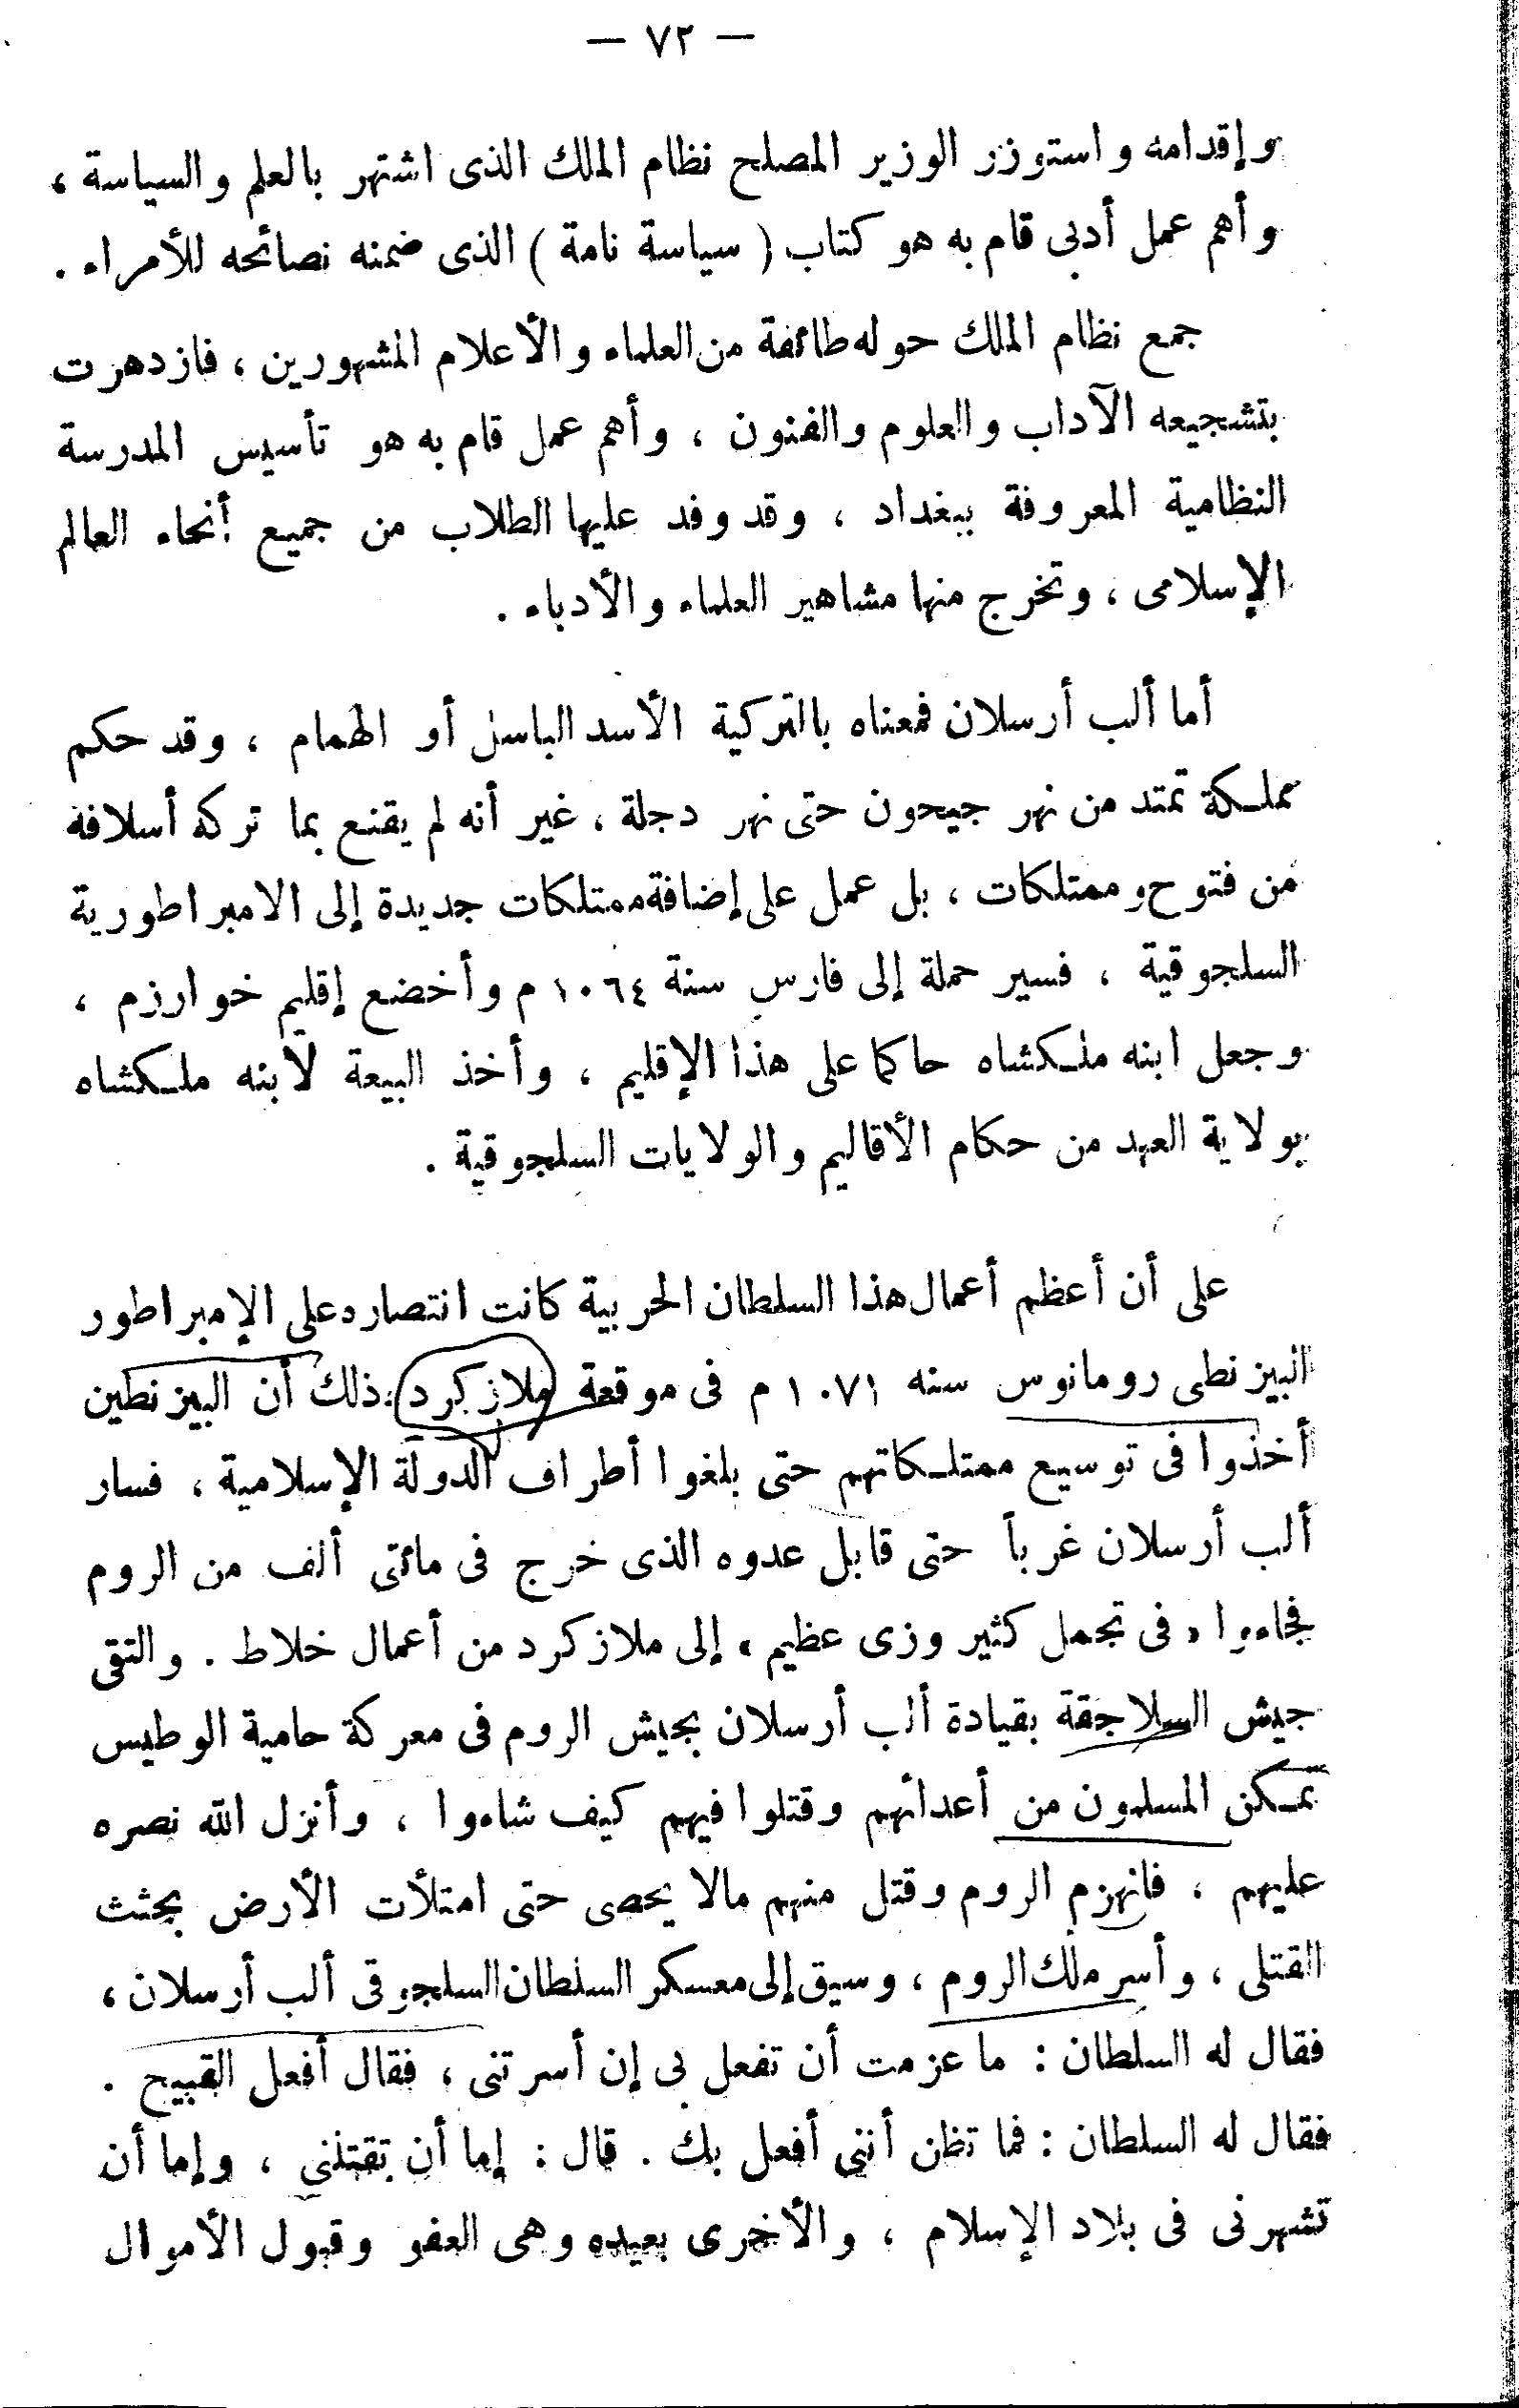 — ٧٢ —
وإقدامه واستوزر الوزير المصلح نظام الملك الذى اشتهر بالعلم والسياسة ،
وأهم عمل أدبى قام به هو كتاب ( سياسة نامة ) الذى ضمنه نصائحه للأمراء .
جمع نظام الملك حوله طائفة من العلماء والأعلام المشهورين ، فازدهرت
بتشجيعه الآداب والعلوم والفنون ، وأهم عمل قام به هو تأسيس المدرسة
النظامية المعروفة ببغداد ، وقد وفد عليها الطلاب من جميع أنحاء العالم
الإسلامى ، وتخرج منها مشاهير العلماء والأدباء .
أما ألب أرسلان فمعناه بالتركية الأسد الباسل أو الهمام ، وقد حكم
مملكة تمتد من نهر جيحون حتى نهر دجلة ، غير أنه لم يقنع بما تركه أسلافه
من فتوح وممتلكات ، بل عمل على إضافة ممتلكات جديدة إلى الامبراطورية
السلجوقية ، فسير حملة إلى فارس سنة ١٠٦٤ م وأخضع إقليم خوارزم ،
وجعل ابنه ملكشاه حاكما على هذا الإقليم ، وأخذ البيعة لابنه ملكشاه
بولاية العهد من حكام الأقاليم والولايات السلجوقية .
على أن أعظم أعمال هذا السلطان الحربية كانت انتصاره على الإمبراطور
البيزنطى رومانوس سنه ١٠٧١ م فى موقعة ملازكرد . ذلك أن البيزنطين
أخذوا فى توسيع ممتلكاتهم حتى بلغوا أطراف الدولة الإسلامية ، فسار
ألب أرسلان غرباً حتى قابل عدوه الذى خرج فى مائتى ألف من الروم
فجاءوا « فى تجمل كثير وزى عظيم » إلى ملازكرد من أعمال خلاط . والتقى
جيش السلاجقة بقيادة ألب أرسلان بجيش الروم فى معركة حامية الوطيس
تمكن المسلمون من أعدائهم وقتلوا فيهم كيف شاءوا ، وأنزل الله نصره
عليهم ، فانهزم الروم وقتل منهم مالا يحصى حتى امتلأت الأرض بجثث
القتلى ، وأسر ملك الروم ، وسيق إلى معسكر السلطان السلجوقى ألب أرسلان ،
فقال له السلطان : ما عزمت أن تفعل بى إن أسرتنى ، فقال أفعل القبيح .
فقال له السلطان : فما تظن أننى أفعل بك . قال : إما أن تقتلنى ، وإما أن
تشهرنى فى بلاد الإسلام ، والأخرى بعيده وهى العفو وقبول الأموال